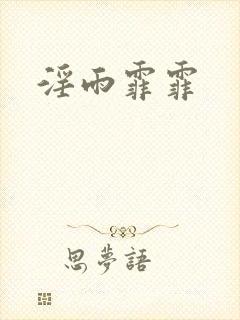 淫雨霏霏
思夢語